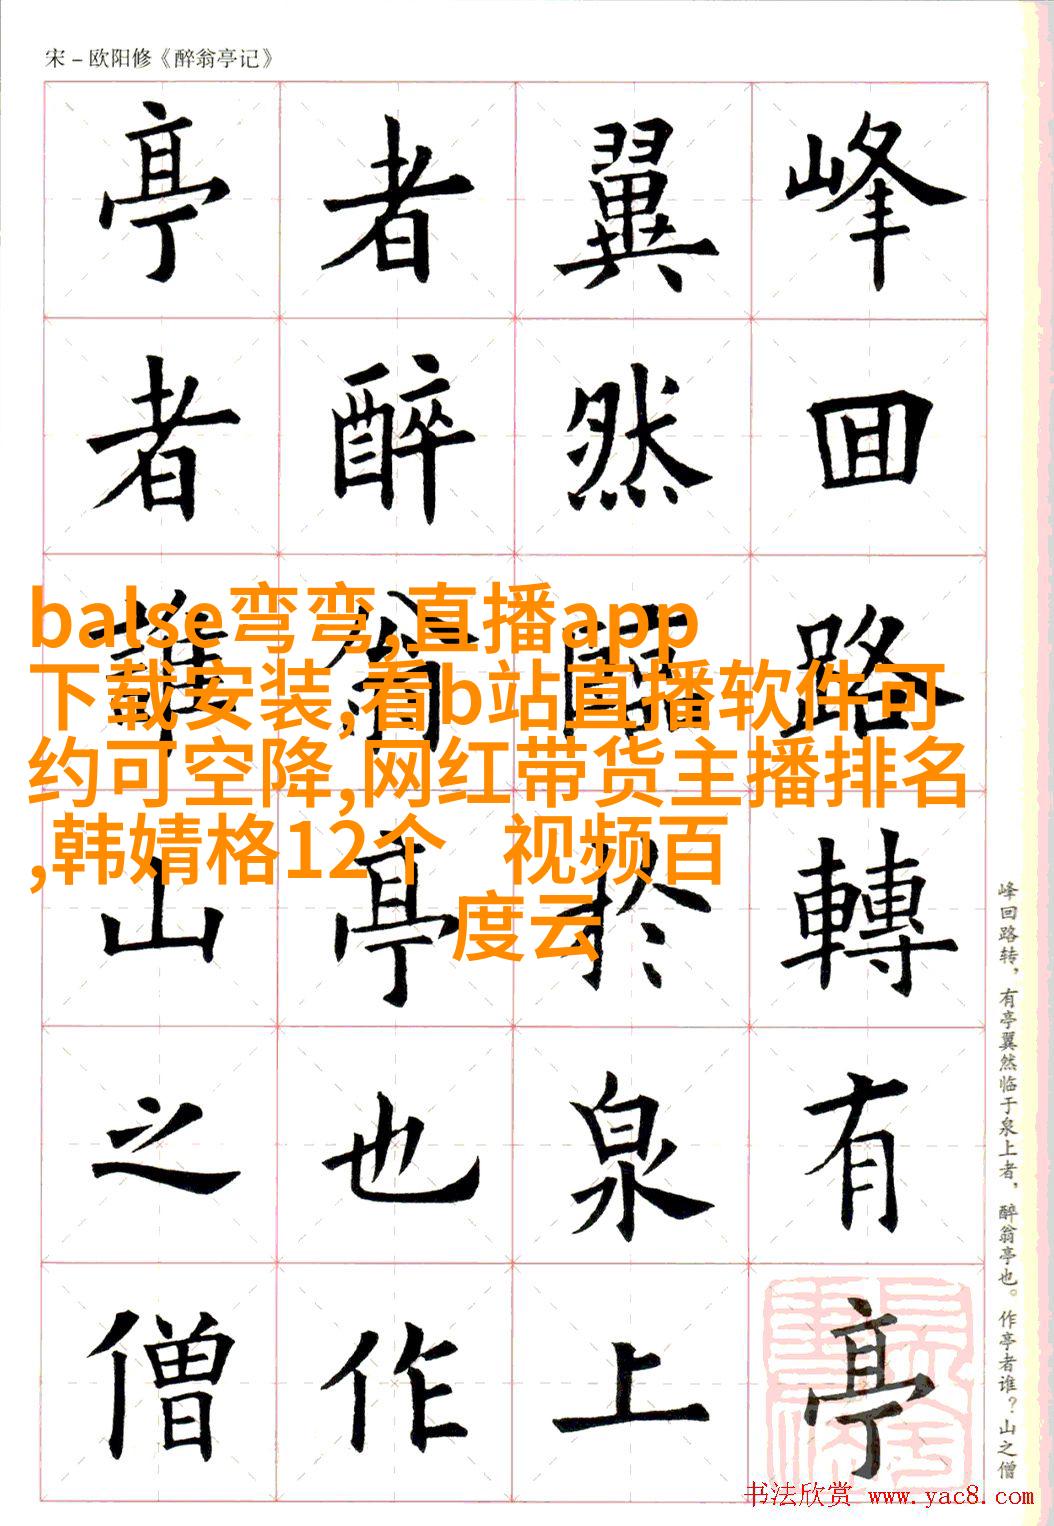 宋－欧阳修《醉翁亭记》
峰回路轉有亭
翼然臨於泉上
者醉翁亭也作
亭者誰山之僧
balse弯弯,直播app
下载安装,看b站直播软件可
约可空降,网红带货主播排名
,韩婧格12个 视频百
度云
峰回路转，有亭翼然临于泉上者，醉翁亭也。作亭者谁？山之僧
书法欣赏 www.yac8.com